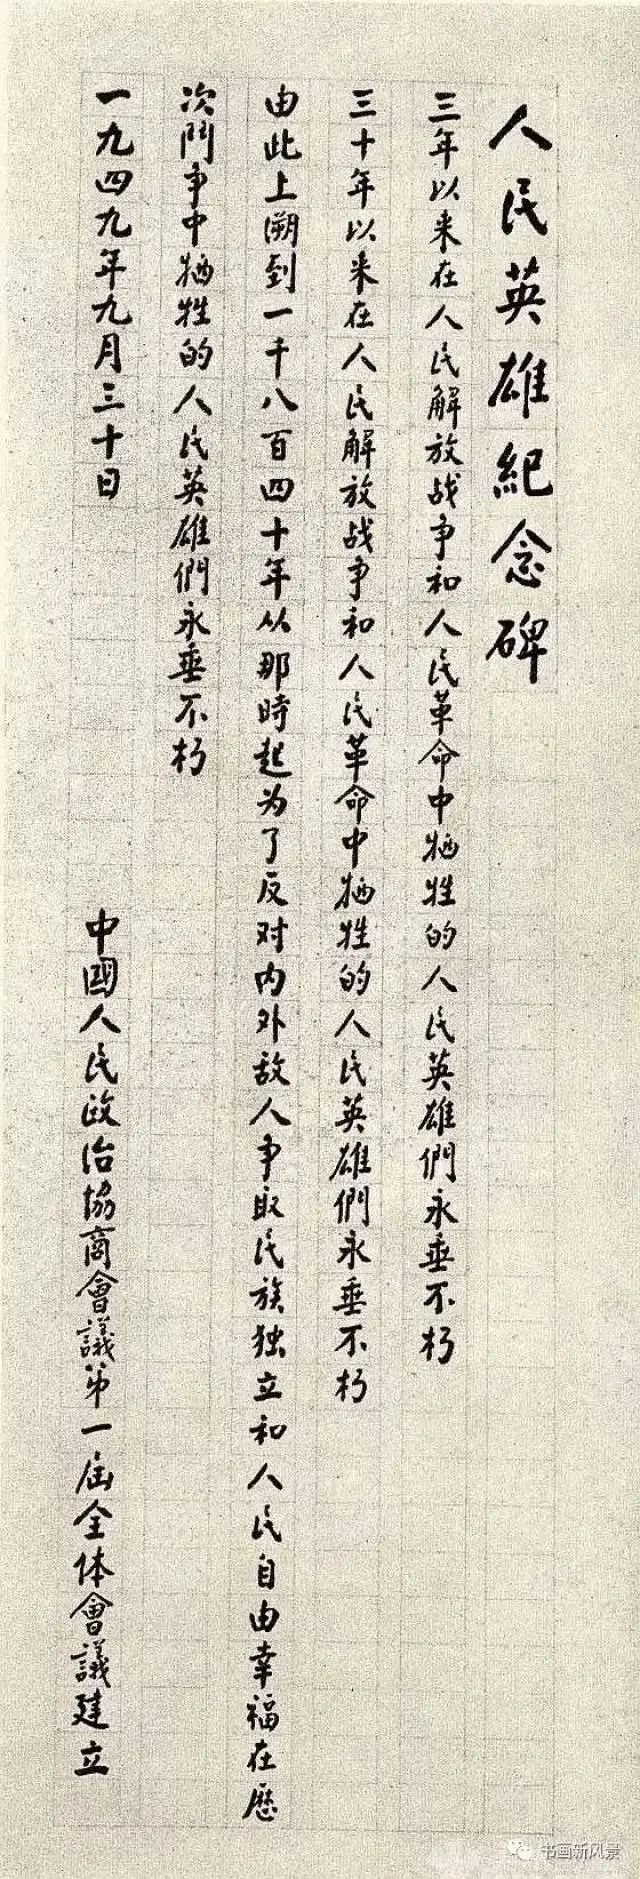 人民英雄紀念碑
三年以来在人民解放战争和人民革命中牺牲的人民英雄們永垂不朽
三十年以来在人民解放战争和人民革命中牺牲的人民英雄們永垂不朽
由此上溯到一千八百四十年从那時起为了反对内外敌人争取民族独立和人民自由幸福在歷
次鬥争中牺牲的人民英雄們永垂不朽
一九四九年九月三十日
中國人民政治協商會議第一届全体會議建立
书画新风景